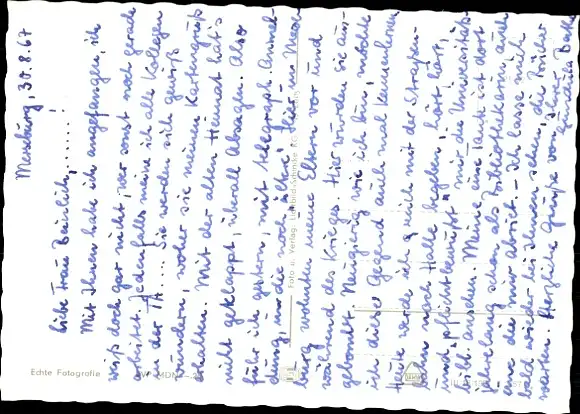 Merseburg, 30.8.67
Liebe Frau Beinlich, . . . . . !
Mit Ihnen habe ich angefangen, ich
weiß doch gar nicht, wer sonst noch gerade
arbeitet. Jedenfalls meine ich alle Kollegen
in der . . . . Sie werden sich gewiß
wundern, woher sie meinen Kartengruß
erhalten. Mit der alten Heimat hat's
nicht geklappt, überall Absagen. Also
fuhr ich gestern, mit telegraph. Anmel-
dung, in die noch ältere! – Hier in Merse-
burg wohnten meine Eltern vor und
während des Krieges. Hier wurden sie aus-
gebombt. Neugierig wie ich bin, möchte
ich diese Gegend auch mal kennenlernen.
Heute werde ich gleich mit der Straßen-
bahn nach Halle
und "pflichtbewußt" mir die Universitäts-
bibl. ansehen. Meine eine Tante ist dort
jahrelang schon als Bibliothekarin, auch
eine die mir abriet. – Ich lasse mich
bald wieder bei Ihnen sehen, die Bücher
warten. Herzliche Grüße von Ihrer
Echte Fotografie
Foto u. Verlag: